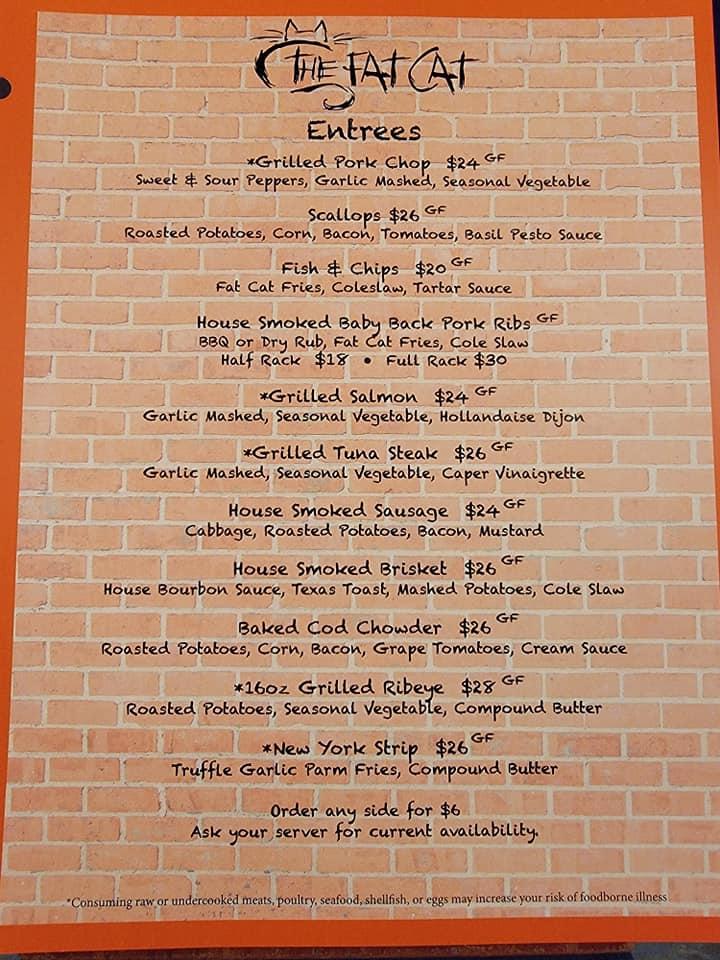 THE FAT CAT
Entrees
*Grilled Pork Chop $24 GF
Sweet & Sour Peppers, Garlic Mashed, Seasonal Vegetable
Scallops $26 GF
Roasted Potatoes, Corn, Bacon, Tomatoes, Basil Pesto Sauce
Fish & Chips $20 GF
Fat Cat Fries, Coleslaw, Tartar Sauce
House Smoked Baby Back Pork Ribs GF
BBQ or Dry Rub, Fat Cat Fries, Cole Slaw
Half Rack $18 • Full Rack $30
*Grilled Salmon $24 GF
Garlic Mashed, Seasonal Vegetable, Hollandaise Dijon
*Grilled Tuna Steak $26 GF
Garlic Mashed, Seasonal Vegetable, Caper Vinaigrette
House Smoked Sausage $24 GF
Cabbage, Roasted Potatoes, Bacon, Mustard
House Smoked Brisket $26 GF
House Bourbon Sauce, Texas Toast, Mashed Potatoes, Cole Slaw
Baked Cod Chowder $26 GF
Roasted Potatoes, Corn, Bacon, Grape Tomatoes, Cream Sauce
*16oz Grilled Ribeye $28 GF
Roasted Potatoes, Seasonal Vegetable, Compound Butter
*New York Strip $26 GF
Truffle Garlic Parm Fries, Compound Butter
Order any side for $6
Ask your server for current availability.
*Consuming raw or undercooked meats, poultry, seafood, shellfish, or eggs may increase your risk of foodborne illness